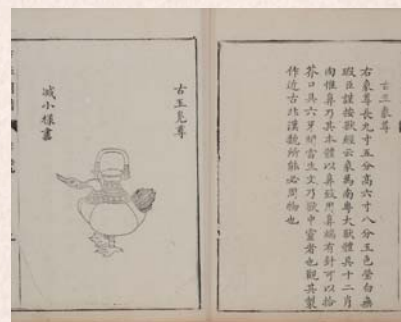 古玉象尊
右象尊長九寸五分高六寸八分玉色瑩白無
瑕臣謹按獸經云象爲南粵大獸體具十二肖
肉惟鼻乃其本體以鼻致用鼻端有針可以拾
芥口具六牙聞雷生文乃獸中靈者也觀其製
作近古非漢魏所能必周物也
古玉鳧尊
减小樣畫